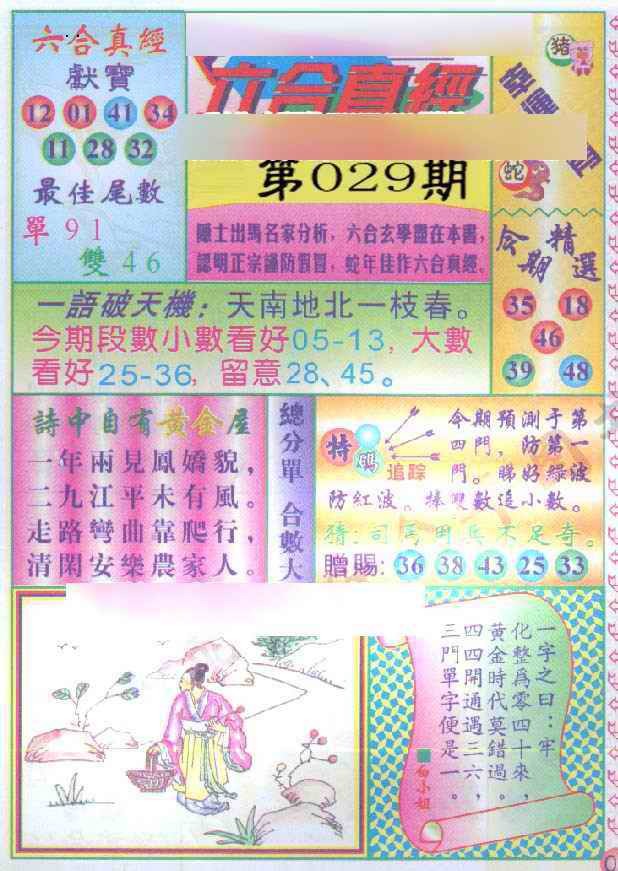 六合真經
獻寶
12 01 41 34
11 28 32
最佳尾數
單 9 1
雙 4 6
六合真經
第029期
隱士出馬名家分析，六合玄學盡在本書，
認明正宗謹防假冒，蛇年佳作六合真經。
豬
蛇
今期精選
35 18
46
39 48
一語破天機：天南地北一枝春。
今期段數小數看好05-13，大數
看好25-36，留意28、45。
詩中自有黃金屋
一年兩見鳳嬌貌，
二九江平未有風。
走路彎曲靠爬行，
清閑安樂農家人。
總分單 合數大
特碼
追踪
今期預測于第
四門，防第一
門。睇好綠波
防紅波。捧雙數追小數。
猜：司馬用兵不足奇。
贈賜：36 38 43 25 33
一字之曰：牢
化整爲零四十來，
黃金時代莫錯過，
四四開通遇三六，
三門單字便是一。
白小姐